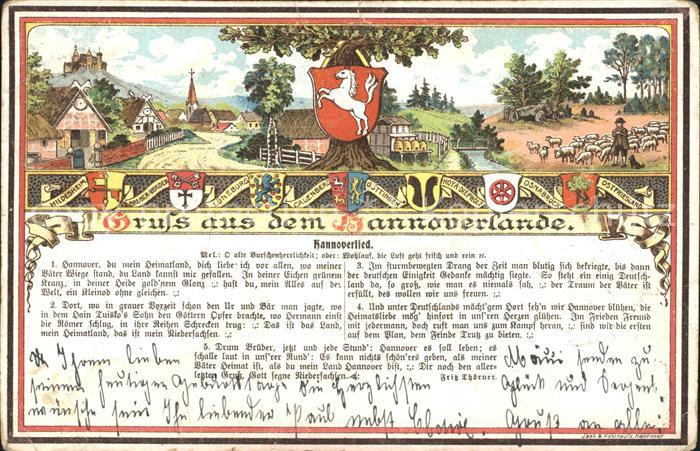 HILDESHEIM
BREMEN-VERDEN
LÜNEBURG
CALENBERG
GÖTTINGEN
HOYA-DIEPHOLZ
OSNABRÜCK
OSTFRIESLAND
Gruss aus dem Hannoverlande.
Hannoverlied.
Mel.: O alte Burschenherrlichkeit; oder: Wohlauf, die Luft geht frisch und rein ꝛc.
1. Hannover, du mein Heimatland, dich liebe ich vor allen, wo meiner
Väter Wiege stand, du Land kannst mir gefallen. In deiner Eichen grünem
Kranz, in deiner Heide gold'nem Glanz :,: hast du, mein Alles auf der
Welt, ein Kleinod ohne gleichen. :,:
2. Dort, wo in grauer Vorzeit schon den Ur und Bär man jagte, wo
in dem Hain Tuisko's Sohn den Göttern Opfer brachte, wo Hermann einst
die Römer schlug, in ihre Reihen Schrecken trug: :,: Das ist das Land,
mein Heimatland, das ist mein Niedersachsen. :,:
3. Im sturmbewegten Drang der Zeit man blutig sich bekriegte, bis dann
der deutschen Einigkeit Gedanke mächtig siegte. So steht ein einig Deutsch-
land da, so groß, wie man es niemals sah, :,: der Traum der Väter ist
erfüllt, des wollen wir uns freuen. :,:
4. Und unter Deutschlands mächt'gem Hort seh'n wir Hannover blühen, die
Heimatsliebe mög' hinfort in uns'ren Herzen glühen. Im Frieden Freund
mit jedermann, doch ruft man uns zum Kampf heran, :,: sind wir die ersten
auf dem Plan, dem Feinde Trutz zu bieten. :,:
5. Drum Brüder, jetzt und jede Stund': Hannover es soll leben!
schalle laut in uns'rer Rund': Es kann nichts schön'res geben, als meiner
Väter Heimat ist, als du mein Land Hannover bist, :,: Dir noch den aller-
letzten Gruß, Gott segne Niedersachsen. :,:
Fritz Thörner.
Ihrem lieben
seinem heutigen Geburtstage die herzlichsten
Ihr liebender Paul nebst
senden zu
Glück und Segens
Gruß an alle!